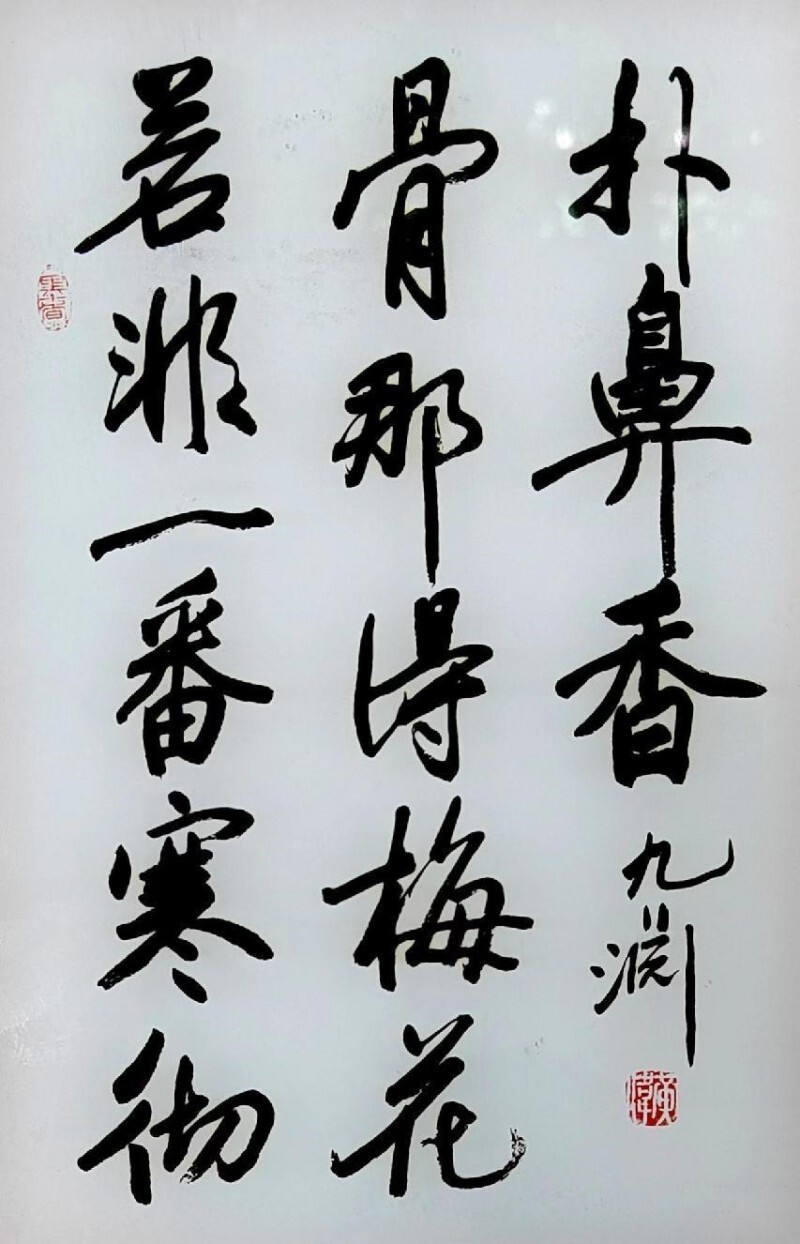 若非一番寒彻
骨那得梅花
扑鼻香
九渊